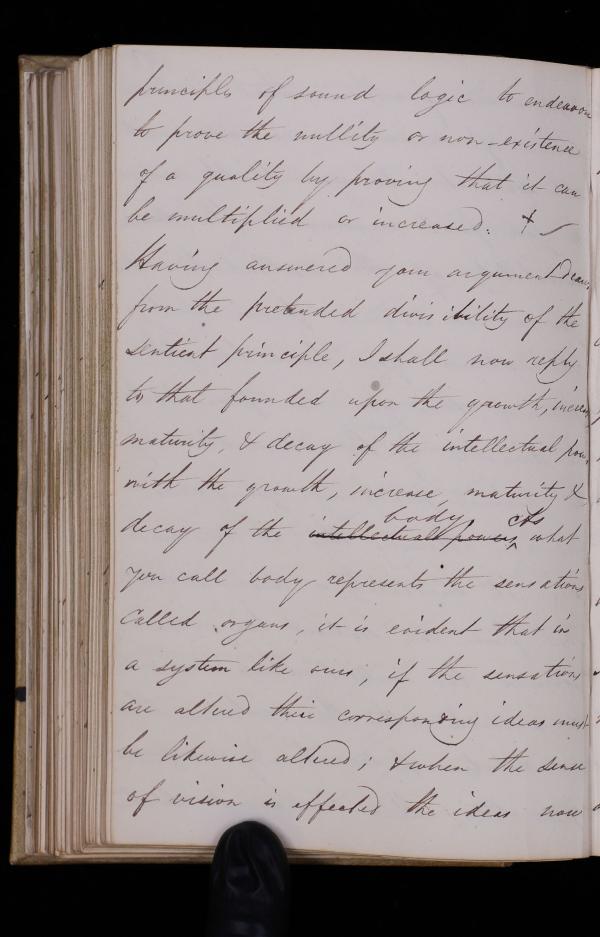 principles of sound logic to endeavour
to prove the nullity or non-existence
of a quality by proving that it can
be multiplied or increased. +
Having answered your argument drawn
from the pretended divisibility of the
sentient principle, I shall now reply
to that founded upon the growth, increase
maturity, & decay of the intellectual powers
with the growth, increase, maturity &
body As
decay of the intellectual powers, what
you call body represents the sensations
called organs, it is evident that in
a system like ours, if the sensations
are altered their corresponding ideas must
be likewise altered; & when the sense
of vision is effected the ideas now